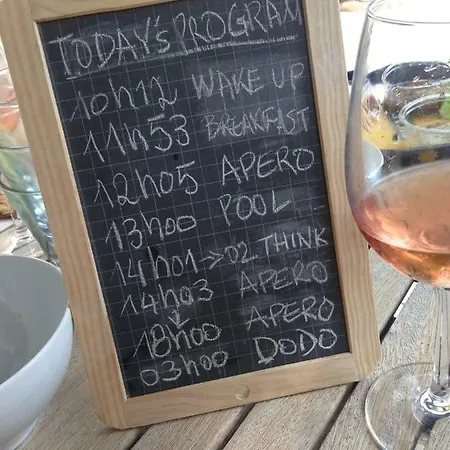 TODAY's PROGRAM
10h12 WAKE UP
11h53 BREAKFAST
12h05 APERO
13h00 POOL
14h01->02 THINK
14h03 APERO
↓
18h00 APERO
03h00 DODO